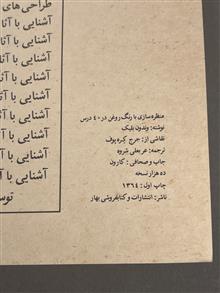 طراحی های
آشنایی با آثا
آشنایی با آثا
آشنایی با آثا
آشنایی با آثا
آشنایی با آثا
آشنایی با آثا
آشنایی با آثا
آشنایی با آثا
آشنایی با آ
توس
منظره‌سازی با رنگ روغن در ۴۰ درس
نوشته: وندون بلیک
نقاشی از: جرج
ترجمه: عربعلی شروه
چاپ و صحافی: کارون
ده هزار نسخه
چاپ اول: ۱۳٦٤
ناشر: انتشارات و کتابفروشی بهار